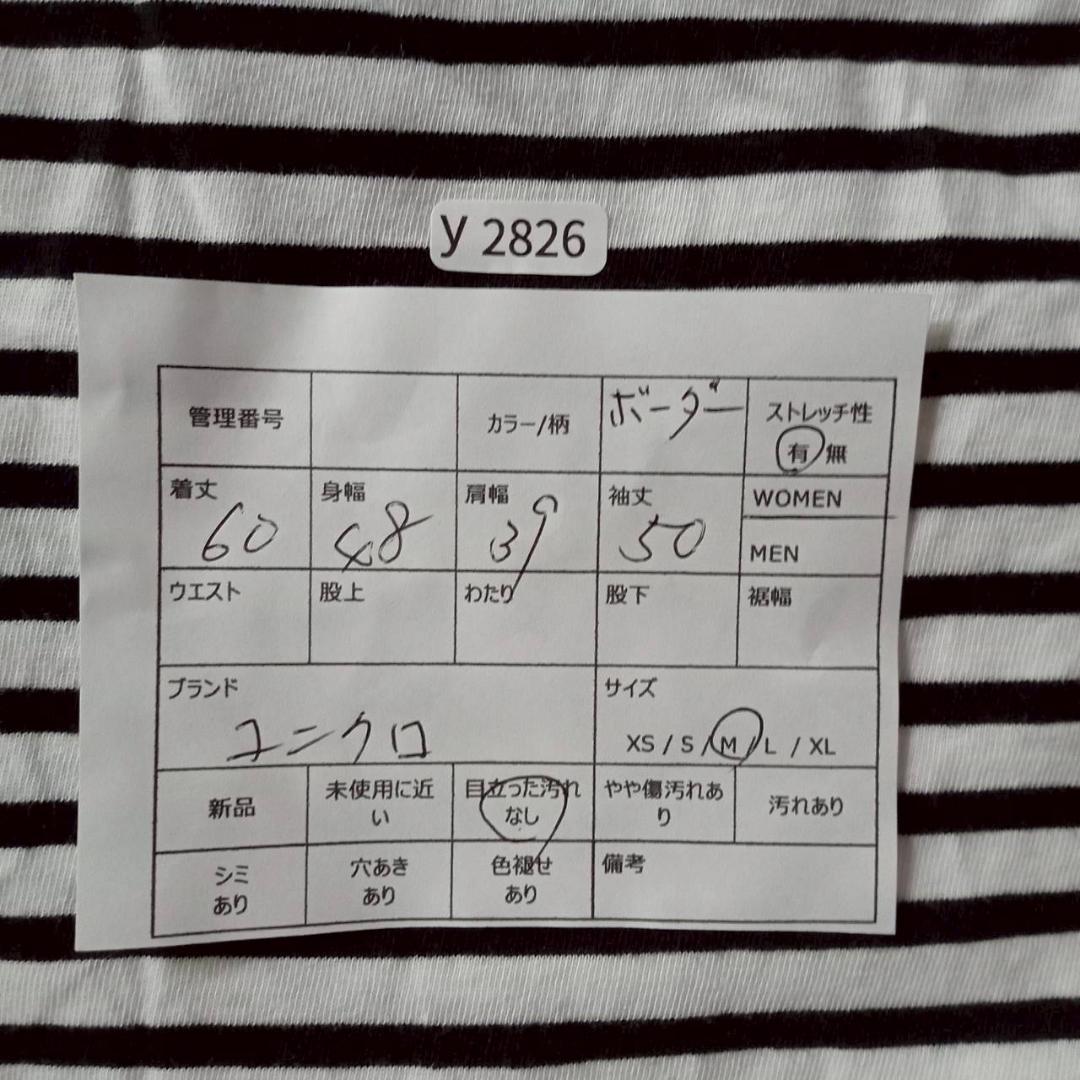 y 2826
管理番号
カラー/柄
ボーダー
ストレッチ性
有 無
着丈
60
身幅
48
肩幅
39
袖丈
50
WOMEN
MEN
ウエスト
股上
わたり
股下
裾幅
ブランド
ユニクロ
サイズ
XS / S / M / L / XL
新品
未使用に近
い
目立った汚れ
なし
やや傷汚れあ
り
汚れあり
シミ
あり
穴あき
あり
色褪せ
あり
備考